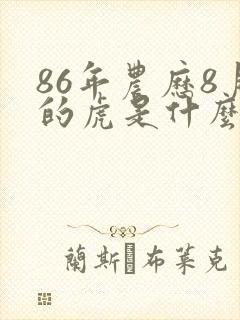 86年農歷8月
的虎是什麼
蘭斯·布萊克